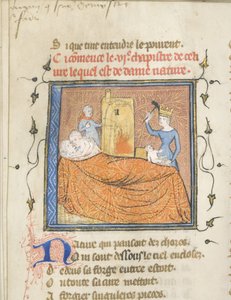 Si que tuit entendre le porront.
Ci comence le .vi. chapistre de cest
liure lequel est de dame nature.
Nature qui pansoit des choses
Qui sont dessouz le ciel encloses
Dedenz sa forge entree estoit.
Ou toute sa cure metoit
A forgier singulieres pieces